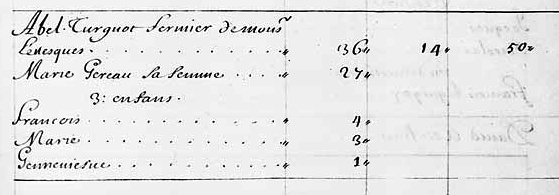 Abel Turquot fermier de monsr
Levesques . . . . . . . . . . . . 36 14 50
Marie Gereau Sa femme . . . . 27
3: enfans.
Francois . . . . . . . . . . . . . 4
Marie . . . . . . . . . . . . . . . 3
Genneviefue . . . . . . . . . . . 1